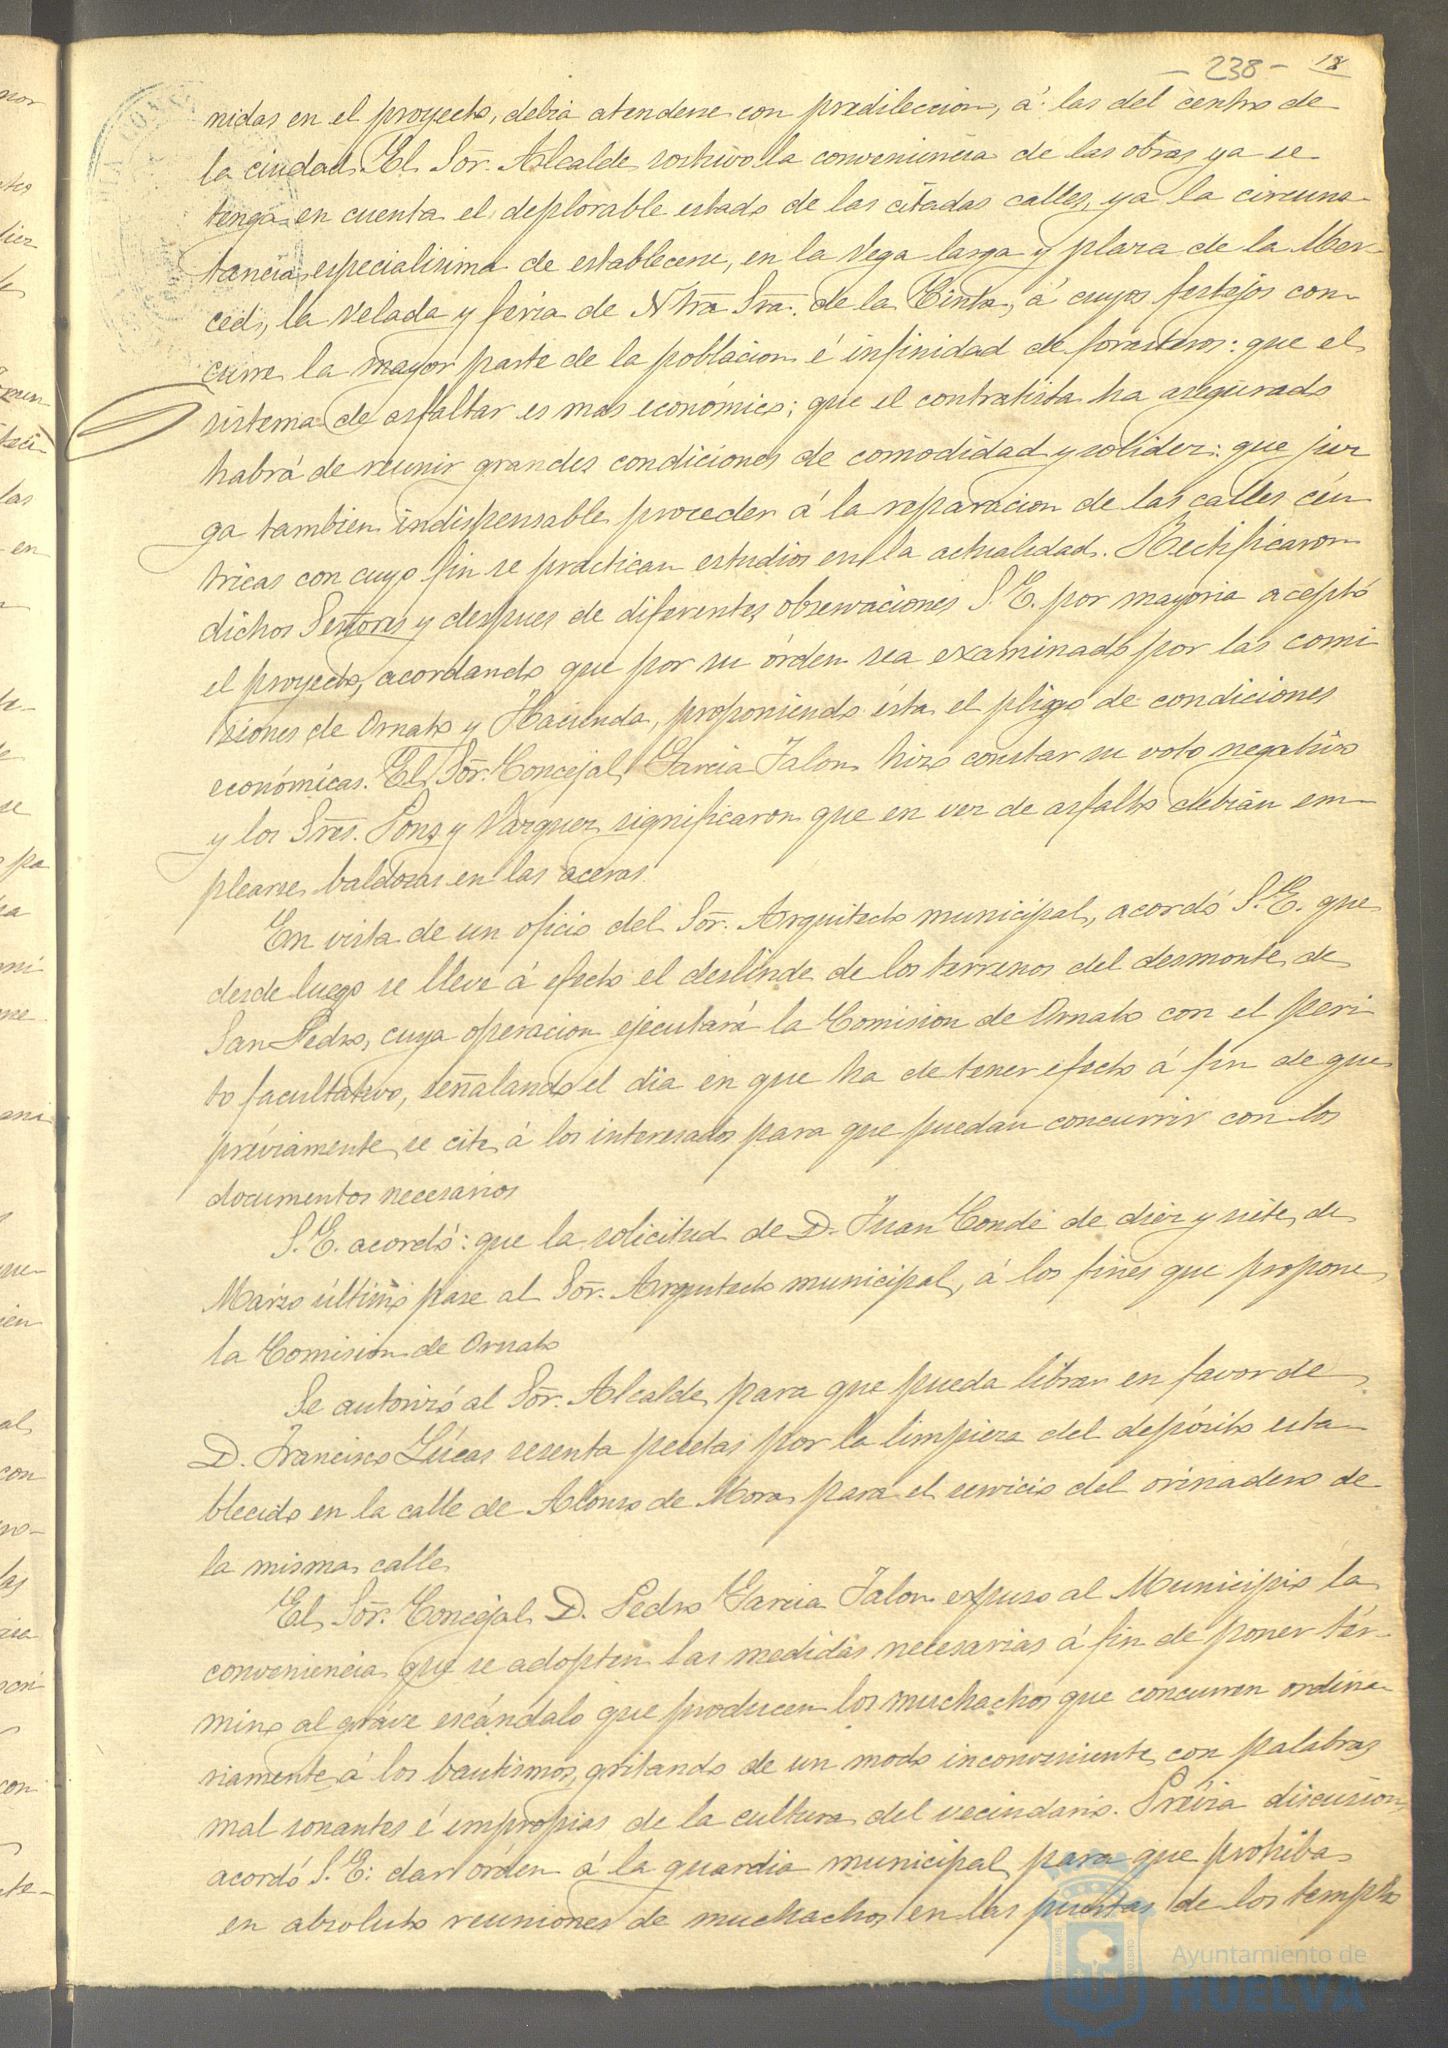 - 238 - 18
nidas en el proyecto, debia atenderse con predileccion, á las del centro de
la ciudad. El Sor. Alcalde sostuvo la conveniencia de las obras ya se
tenga en cuenta el deplorable estado de las citadas calles, ya la circuns-
tancia especialisima de establecerse, en la Vega larga y plaza de la Mer-
ced, la velada y feria de Ntra. Sra. de la Cinta, á cuyos festejos con-
curre la mayor parte de la poblacion é infinidad de forasteros: que el
sistema de asfaltar es mas económico; que el contratista ha asegurado
habrá de reunir grandes condiciones de comodidad y solidez: que juz
ga tambien indispensable proceder á la reparacion de las calles cén
tricas con cuyo fin se practican estudios en la actualidad. Rectificaron
dichos Señores y despues de diferentes observaciones S. E. por mayoria aceptó
el proyecto, acordando que por su órden sea examinado por las comi
siones de Ornato y Hacienda, proponiendo ésta el pliego de condiciones
económicas. El Sor. Concejal Garcia Jalon hizo constar su voto negativo
y los Sres. Pons y Vazquez significaron que en vez de asfalto debian em-
plearse baldosas en las aceras.
En vista de un oficio del Sor. Arquitecto municipal, acordó S. E. que
desde luego se lleve á efecto el deslinde de los terrenos del desmonte de
San Pedro, cuya operacion ejecutará la Comision de Ornato con el peri
to facultativo, señalando el dia en que ha de tener efecto á fin de que
préviamente se cite á los interesados para que puedan concurrir con los
documentos necesarios
S. E. acordó: que la solicitud de D. Juan Conde de diez y siete de
Marzo último pase al Sor. Arquitecto municipal, á los fines que propone
la Comision de Ornato
Se autorizó al Sor. Alcalde para que pueda librar en favor de
D. Francisco Lúcas sesenta pesetas por la limpieza del depósito esta
blecido en la calle de Alonso de Mora para el servicio del orinadero de
la misma calle
El Sor. Concejal D. Pedro Garcia Jalon expuso al Municipio la
conveniencia que se adopten las medidas necesarias á fin de poner tér-
mino al gráve escándalo que producen los muchachos que concurren ordina-
riamente á los bautismos, gritando de un modo inconveniente con palabras
mal sonantes é impropias de la cultura del vecindario. Prévia discusion,
acordó S. E: dar órden á la guardia municipal para que prohiba
en absoluto reuniones de muchachos en las puertas de los templos
Ayuntamiento de
HUELVA